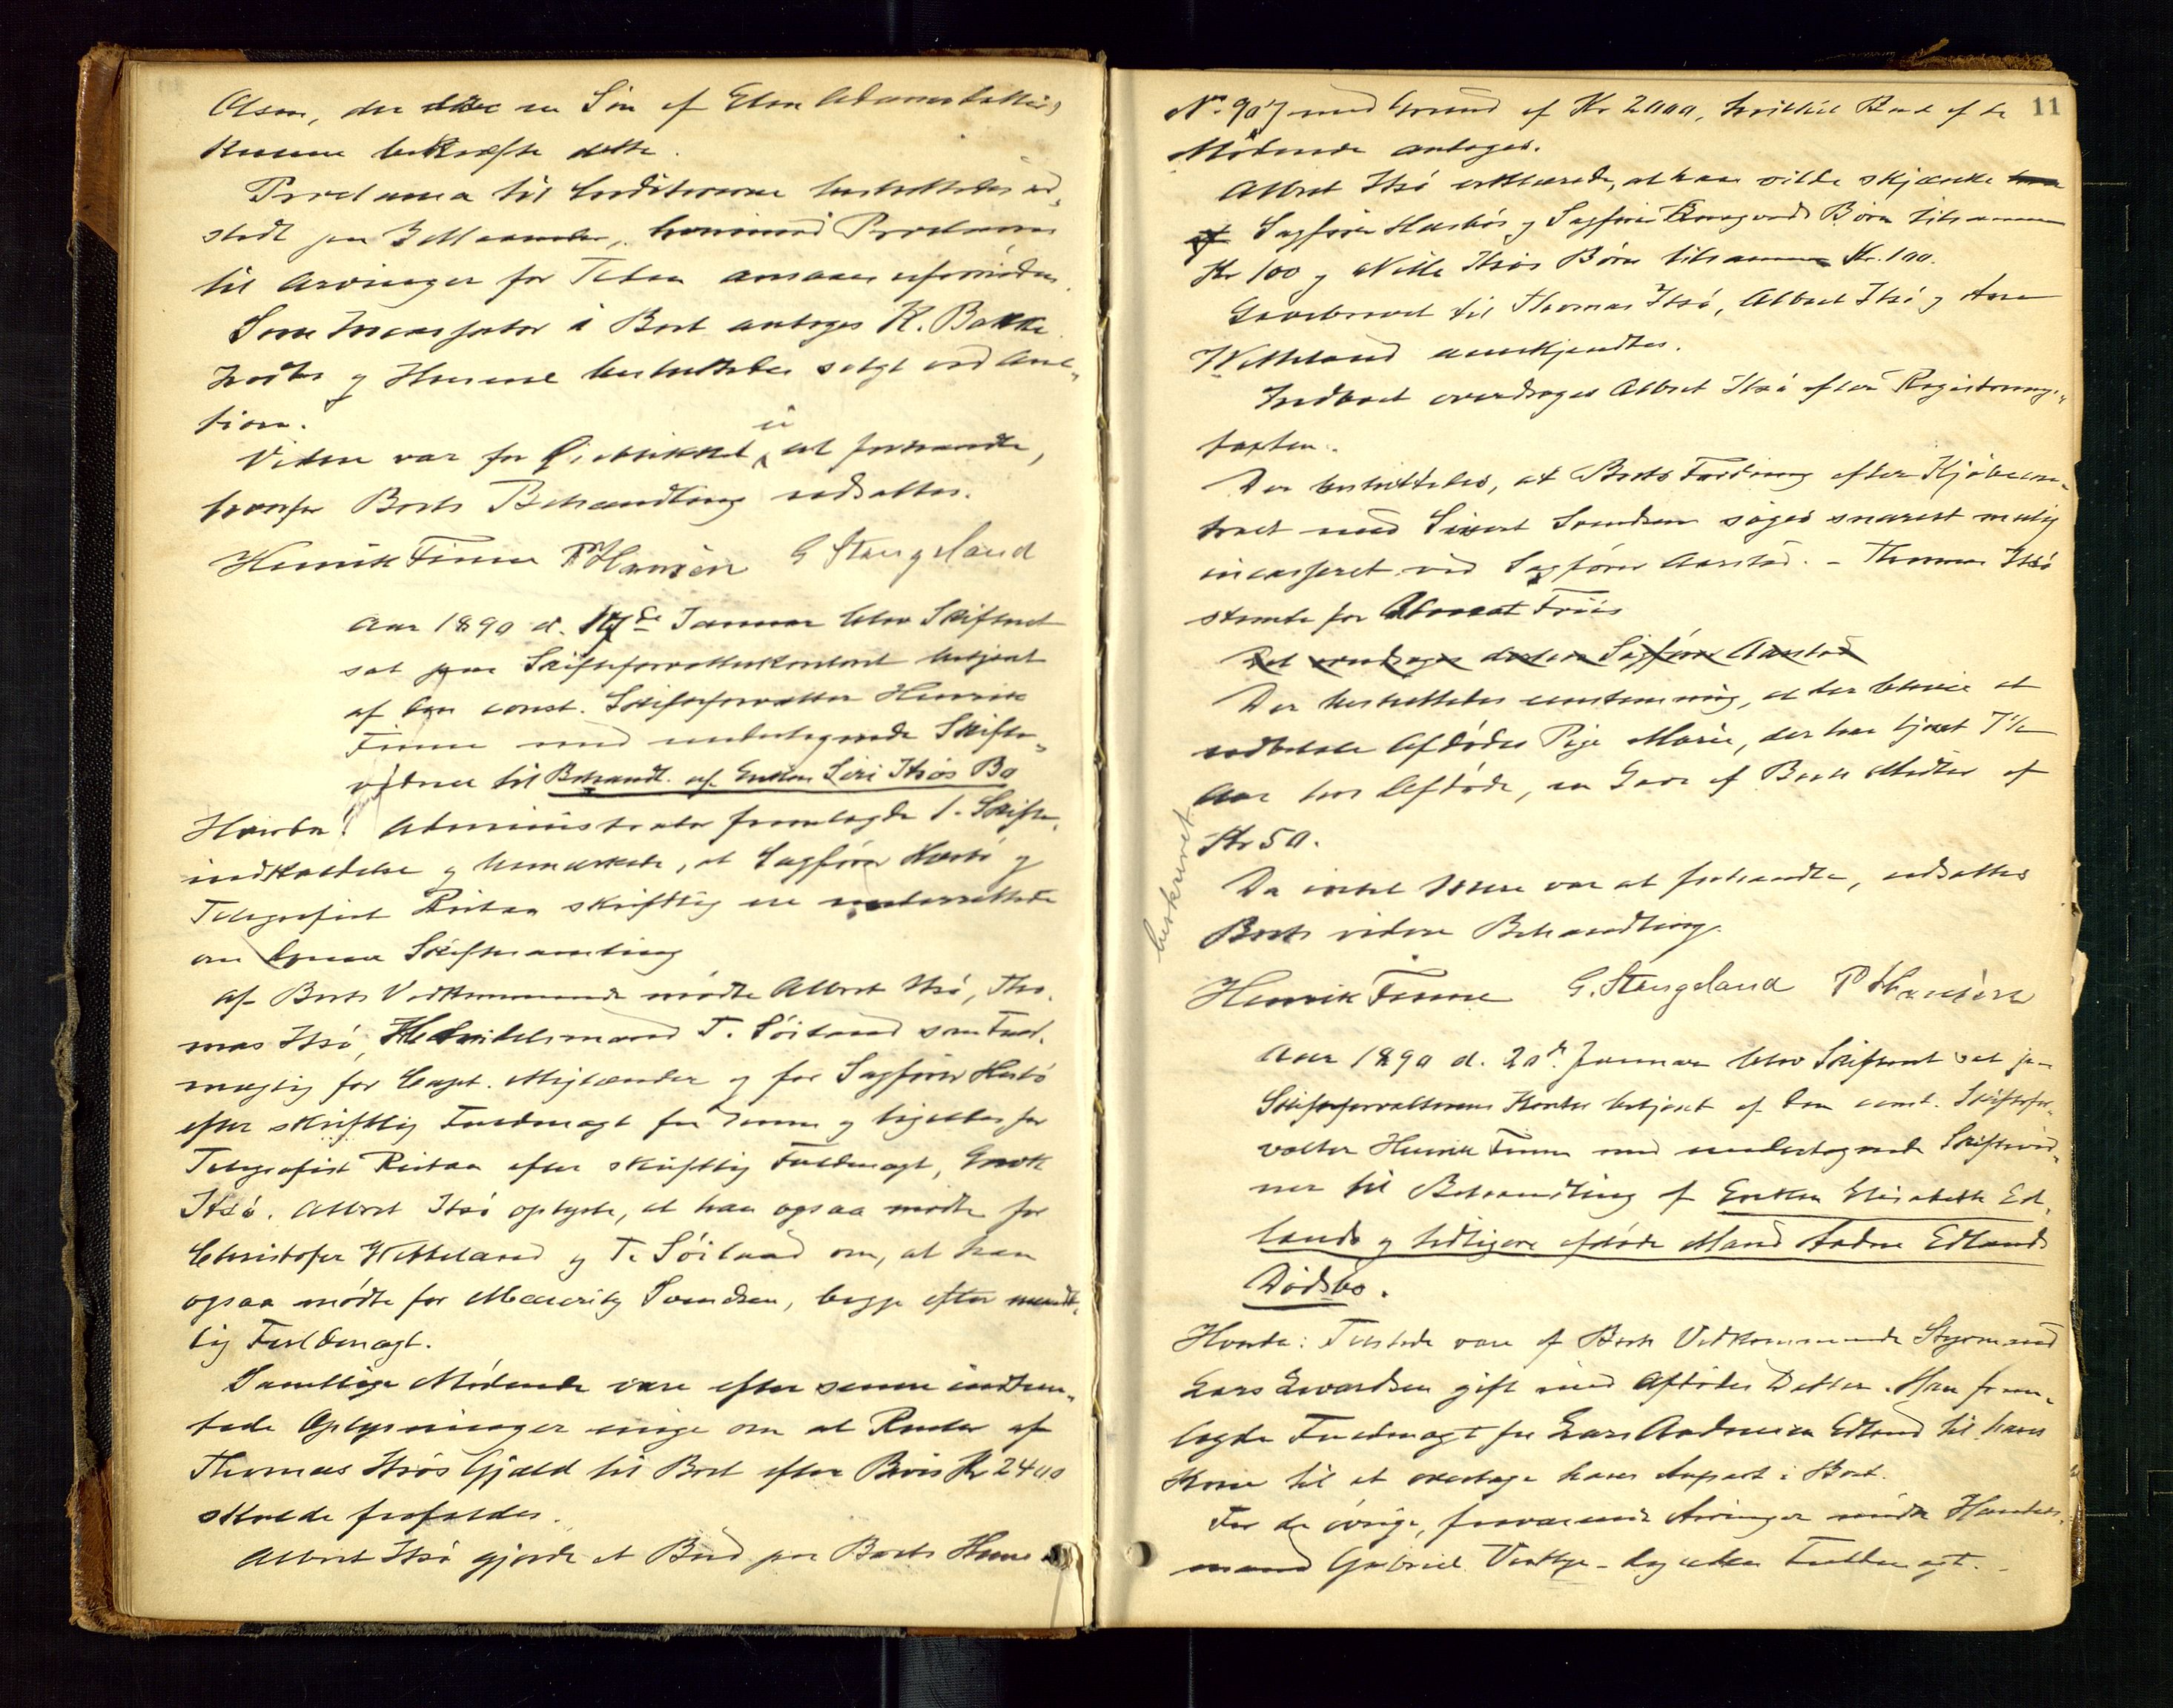 Olsen, der er en Søn af Elen Adamsdatter,
kunne bekræfte dette.
Proclama til Creditorerne besluttedes ud-
stedt paa 3 Maaneder, hvorimod Proclama
til Arvinger for Tiden ansaaes ufornøden.
Som Incassator i Boet antoges K. Bakke
Indbo og Husene besluttedes solgt ved Auc-
tion.
Videre var for Øieblikket ei at forhandle,
hvorfor Boets Behandling udsattes.
Henrik Finne P Hansen G Stangeland
Aar 1890 d. 17de Januar blev Skifteret
sat paa Skifteforvalterkontoret betjent
af den const. Skifteforvalter Henrik
Finne med undertegnede Skifte-
vidner til Behandl. af Enken Siri Htsøs Bo
Hvorda: Administrator fremlagde 1. Skifte-
indkaldelse og bemærkede, at Sagfører Hærbø og
Telegrafist skriftlig ere underrettede
om denne Skiftesamling
Af Boets Vedkommende mødte Albret Itsø, Tho-
mas Itsø, Handelsmand T. Söiland som Fuld-
mægtig for Capt. og for Sagfører
efter skriftlig Fuldmagt fra denne og ligeledes for
Telegrafist efter skriftlig Fuldmagt, Enok
Itsø. Albret Itsø oplyste, at han ogsaa mødte for
Christofer Wetteland og T. Söiland om, at han
ogsaa mødte for Mauritz Svendsen, begge efter mundt-
lig Fuldmagt.
Samtlige Mødende vare efter senere indhen-
tede Oplysninger enige om at Renter af
Thomas Itsøs Gjæld til Boet efter Bevis Kr 2400
skulde frafaldes.
Albret Itsø gjorde et Bud paa Boets Huus
11
No 907 med Grund af Kr 2000, hvilket Bud af de
Mødende antoges.
Albret Itsø erklærede, at han vilde skjænke
Sagfører og Sagfører Børn tilsammen
Kr 100 og Nille Itsøs Børn tilsammen Kr. 100.
Gavebrevet til Thomas Itsø, Albret Itsø og
Wetteland anerkjendtes.
Indboet overdroges Albret Itsø efter Registrerings-
taxten.
Der besluttedes, at Boets Fordring efter Kjøbecon-
tract med Sivert Svendsen søges snarest mulig
incasseret ved Sagfører Aarstad. - Thomas Itsø
stemte for Advocat Friis
Det overdroges derfor Sagfører Aarstad
Der besluttedes enstemmig, at der bliver at
udbetale Afdødes Pige Marie, der har tjent 7½
Aar hos Afdøde, en Gave af Boets Midler af
Kr 50.
Da intet videre var at forhandle, udsattes
Boets videre Behandling.
beskrevet
Henrik Finne G. Stangeland P Hansen
Aar 1890 d. 20de Januar blev Skifteret sat paa
Skifteforvalterens Kontor betjent af den const. Skiftefor-
valter Henrik Finne med undertegnede Skiftevid-
ner til Behandling af Enken Elisabeth Ed-
lands og tidligere afdøde Mand Andreas Edlands
Dødsbo.
Hvorda: Tilstede vare af Boets Vedkommende Styrmand
Lars Iwardsen gift med Afdødes Datter. Han frem-
lagde Fuldmagt fra Lars Andreasen Edland til hans
Kone til at overtage hans Anpart i Boet.
For de øvrige, fraværende Arvinger mødte Handels-
mand Gabriel dog uden Fuldmagt. -